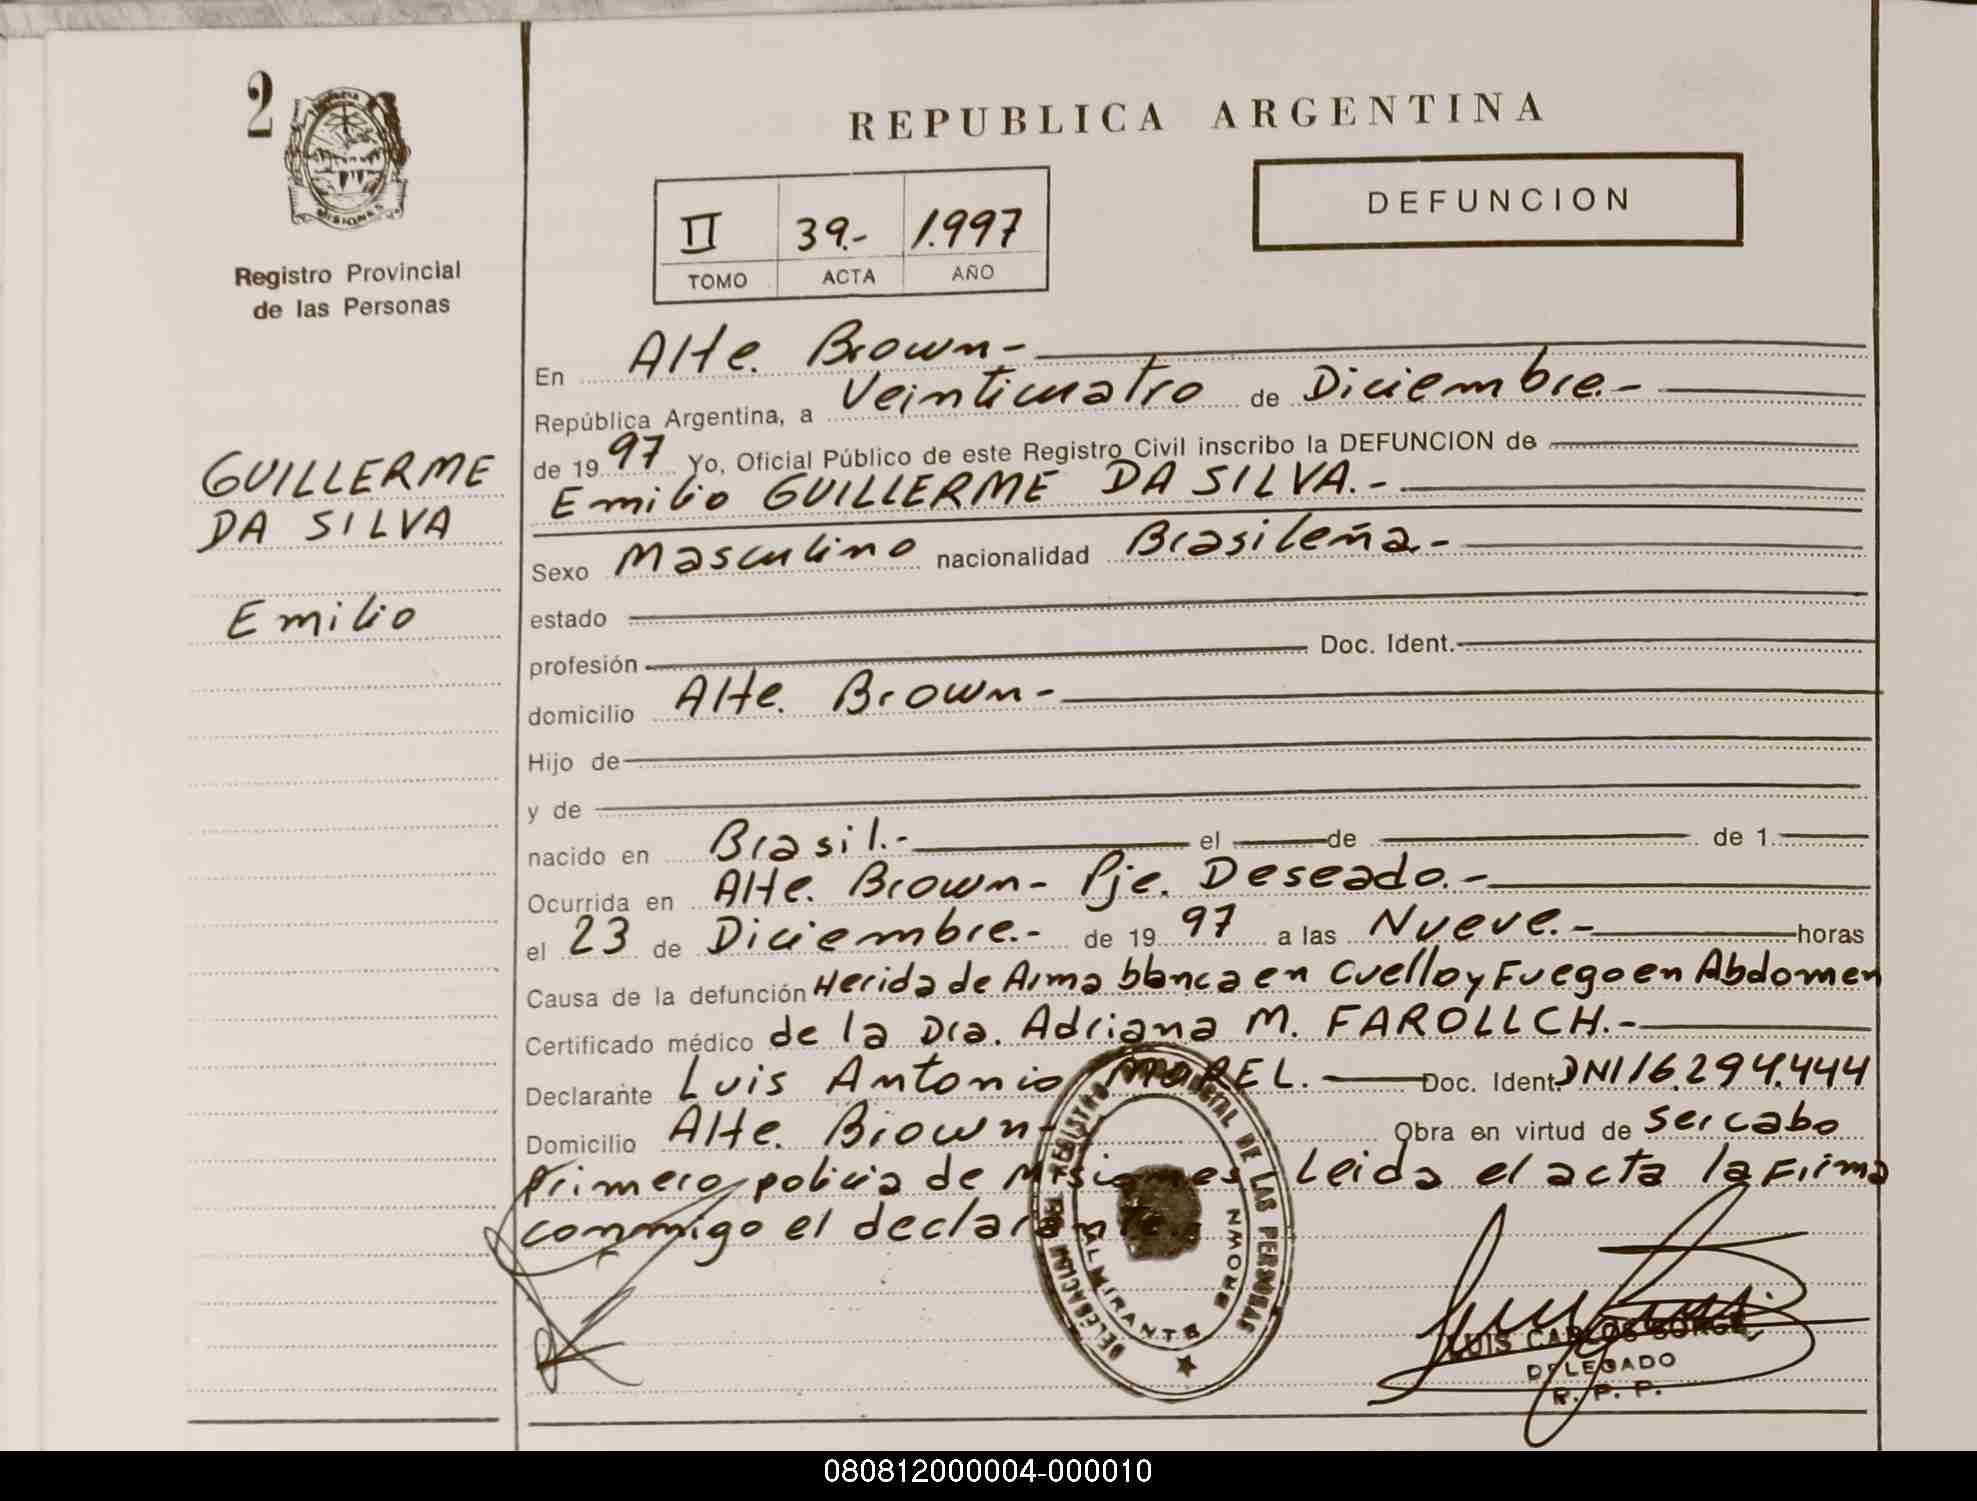 2
PROVINCIA
MISIONES
Registro Provincial
de las Personas
GUILLERME
DA SILVA
Emilio
REPUBLICA ARGENTINA
II 39.- 1.997
TOMO ACTA AÑO
DEFUNCION
En Alte. Brown-
República Argentina, a Veinticuatro de Diciembre.-
de 19 97 Yo, Oficial Público de este Registro Civil inscribo la DEFUNCION de
Emilio GUILLERME DA SILVA.-
Sexo Masculino nacionalidad Brasileña.-
estado
profesión Doc. Ident.
domicilio Alte. Brown-
Hijo de
y de
nacido en Brasil.- el de de 1
Ocurrida en Alte. Brown- Pje. Deseado.-
el 23 de Diciembre.- de 19 97 a las Nueve.- horas
Causa de la defunción Herida de Arma blanca en Cuello y Fuego en Abdomen
Certificado médico de la Dra. Adriana M. FAROLLCH.-
Declarante Luis Antonio MOREL. Doc. Ident. DNI 16.294.444
Domicilio Alte. Brown- Obra en virtud de ser cabo
Primero policia de Misiones Leida el acta la Firma
conmigo el declarante
DELEGACION DEL REGISTRO PROVINCIAL DE LAS PERSONAS
ALMIRANTE BROWN
LUIS CARLOS BORGE
DELEGADO
R. P. P.
080812000004-000010